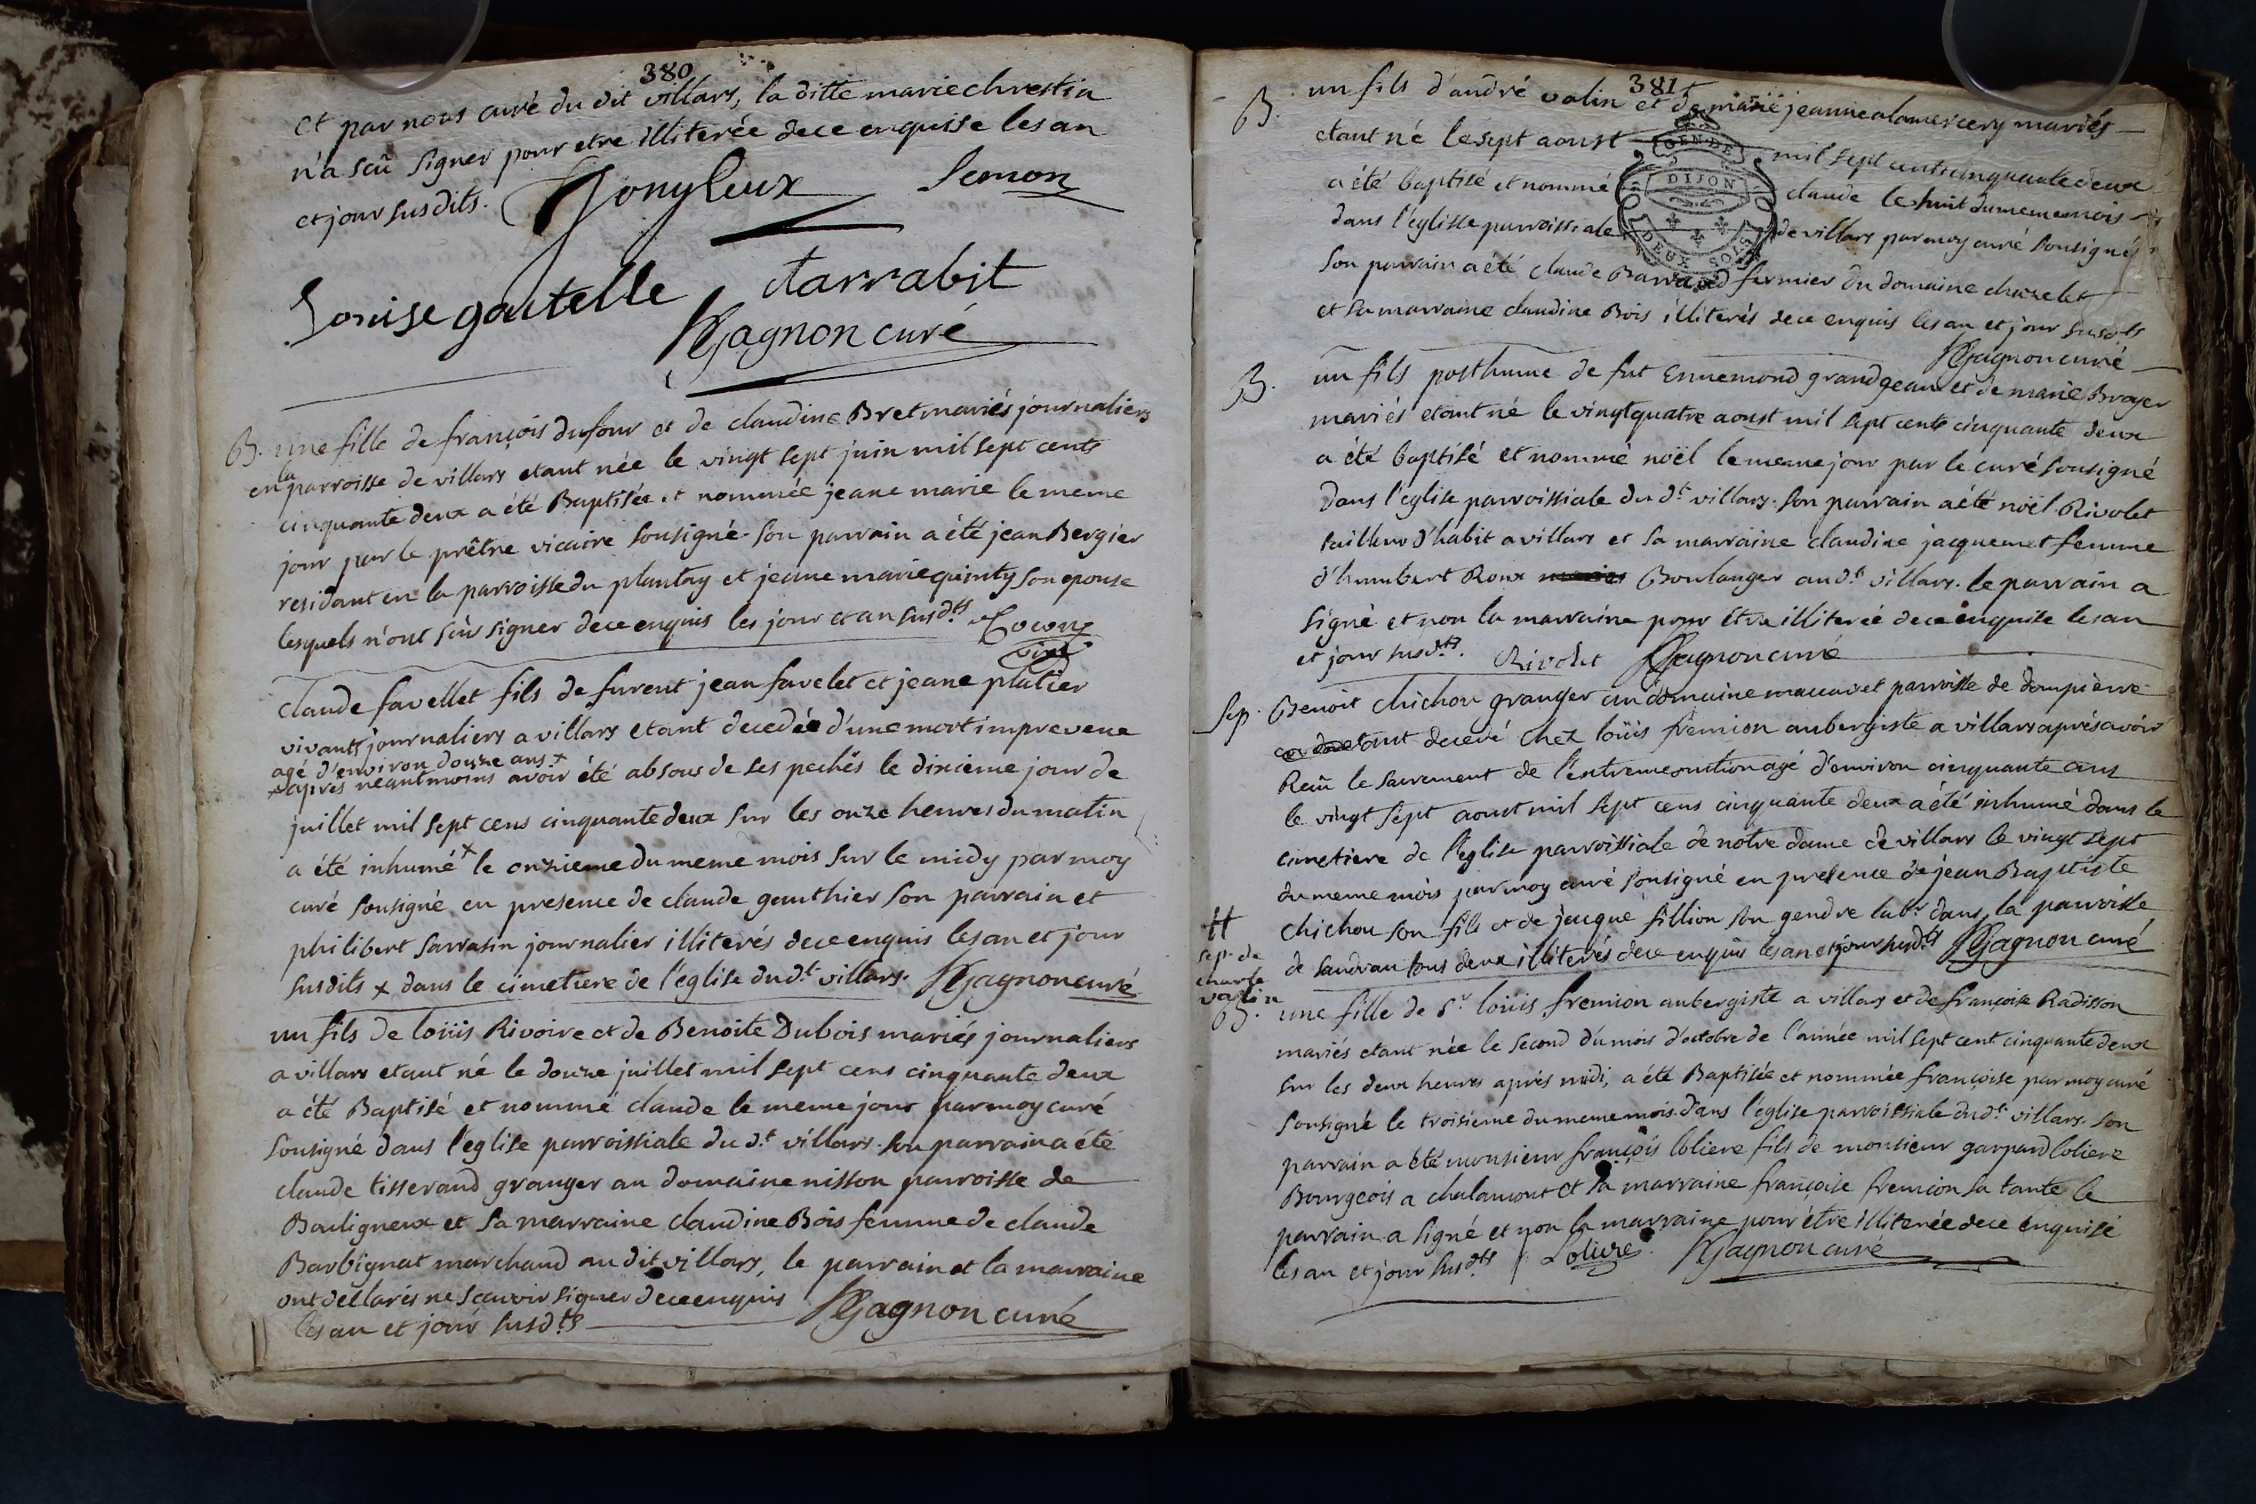 380
et par nous curé du dit villars, la ditte marie chrestin
n'a sçû signer pour etre illiterée de ce enquise les an
et jour susdits. Jonyleux Semon
Louise goutelle darrabit
Gagnon curé
B. une fille de françois dufour et de claudine Bret mariés journaliers
en la parroisse de villars etant née le vingt sept juin mil sept cents
cinquante deux a été Baptisée et nommée jeane marie le meme
jour par le prêtre vicaire sousigné. son parrain a été jean Bergier
residant en la parroisse du plantay et jeane marie quinty son epouse
lesquels n'ont sçu signer de ce enquis les jour et an susdts
vire
claude favellet fils de furent jean favelet et jeane platier
vivants journaliers a villars etant decedée d'une mort imprevene
agé d'environ douze ans x
x apres neantmoins avoir été absous de ses pechés le dixieme jour de
juillet mil sept cens cinquante deux sur les onze heures du matin
a été inhumé x le onzieme du meme mois sur le midy par moy
curé sousigné en presence de claude gauthier son parrain et
philibert sarrasin journalier illiterés de ce enquis les an et jour
susdits x dans le cimetiere de l'église du dt villars. Gagnon curé
un fils de loüis Rivoire et de Benoite Dubois mariés journaliers
a villars etant né le douze juillet mil sept cens cinquante deux
a été Baptisé et nommé claude le meme jour par moy curé
sousigné dans l'eglise parroissiale du d.t villars. son parrain a été
claude tisserand granger au domaine nisson parroisse de
Bouligneux et sa marraine claudine Bois femme de claude
Barbignat marchand au dit villars, le parrain et la marraine
ont dellarés ne scavoir signer de ce enquis
les an et jour susdts Gagnon curé
381
B. un fils d'andré valin et de marie jeanne alamercery mariés
etant né le sept aoust mil sept cents cinquante deux
a été baptisé et nommé claude le huit du meme mois
dans l'eglisse parroissiale de villars par moy curé sousigné
GEN.DE
DIJON
DEUX SOLS
son parrain a été claude Barraud fermier du domaine chazelet
et sa marraine claudine Bois illiterés de ce enquis les an et jour susdts
Gagnon curé
B. un fils posthume de fut Ennemond grandgean et de marie Broyer
mariés etant né le vingtquatre aoust mil sept cents cinquante deux
a été baptisé et nommé noël le meme jour par le curé sousigné
dans l'eglise parroissiale du d.t villars. son parrain a été noël Rivolet
tailleur d'habit a villars et sa marraine claudine jacquemet femme
d'humbert Roux Boulanger au d.t villars. le parrain a
signé et non la marraine pour etre illiterée de ce enquise les an
et jour susdts. Rivolet Gagnon curé
Sep. Benoit chichon granger au domaine parroisse de dompierre
etant decedé chez loüis fremion aubergiste a villars aprés avoir
Reçu le sacrement de l'extremeonction agé d'environ cinquante ans
le vingt sept aoust mil sept cens cinquante deux a été inhumé dans le
cimetiere de l'eglise parroissiale de notre dame de villars le vingt sept
du meme mois par moy curé sousigné en presence de jean Baptiste
chichon son fils et de jacque fillion son gendre labr dans la parroisse
de sandran tous deux illiterés de ce enquis les an et jour susdts Gagnon curé
H
sep. de
charle
valin
B. une fille de Sr loüis fremion aubergiste a villars et de françoise Radisson
mariés etant née le second du mois d'octobre de l'année mil sept cent cinquante deux
sur les deux heures aprés midi, a été Baptisée et nommée françoise par moy curé
sousigné le troisieme du meme mois dans l'église parroissiale du d.t villars. son
parrain a été monsieur françois loliere fils de monsieur gaspard loliere
Bourgeois a chalamont et sa marraine françoise fremion sa tante le
parrain a signé et non la marraine pour être illiterée de ce enquise
les an et jour susdts Loliere Gagnon curé